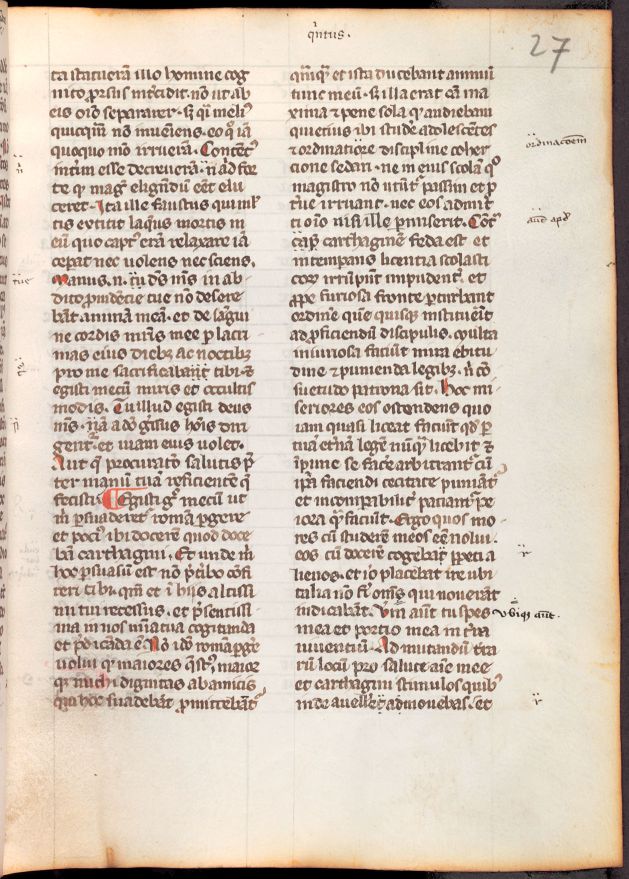 q̃ntus.
27
ta statuerā illo homine cog
nito ꝓrsus ĩtcidit. nō ut ab
eis oĩo separarer. sꝫ q̃ meliꝰ
quicq̃m nō inueniens. eo q̊ iã
quoquo mõ irruerā. Contẽtꝰ
inťim esse decreuerā. ñ aď for
te q̃ mag̃ eligendũ eēt elu
ceret. Ita ille faustus qui ml̃
tis extitit laq̃us mortis m
eũ quo captꝰ erā relaxare iã
ceperat nec volens nec sciens.
Manus. n. tũ ds̃ ms̃ in ab
dito ꝓuidētie tue nō desere
bãt animā meā. et de sãgui
ne cordis mr̃is mee ꝑ lacri
mas eius diebꝫ ac noctibꝫ
pro me sacrificabat̃ tibi. ⁊
egisti mecũ miris et occultis
modis. Tu illud egisti deus
ms̃. nã a dño g̃ssus hoĩs diri
gent̃. et uiam eius uolet.
Aut q̃ procuratō salutis p̃
ter manũ tuā reficiente q̃
fecisti. Egisti g̊ mecũ ut
m̃ ꝑsuaderet̃ romā ꝑgere
et pociꝰ ibi docere quod doce
bā carthagini. Et unde m̃
hoc ꝑsuasũ est nō p̃tibo cōfi
teri tibi. qm̃ et ĩ hijs altissi
mi tui recessus. et p̃sentissi
ma in nos mĩa tua cogitanda
et p̃dicāda ē. Nō iō romā ꝑg̃e
uolui q̃ maiores q̃stꝰ. maior
q̃ michi dignitas ab amicis
qui hoc suadebāt ꝓmittebāt̃
q̃mq̃ et ista ducebant animũ
tunc meũ. sꝫ illa erat cã ma
xima ⁊ pene sola q̃ audiebam
quietius ibi stude᷑ adolescẽtes
⁊ ordinatiore discipline coher
cione sedari. ne in eius scolam q̊
magistro nō utũt̃ passim et ꝓ
t̃ue irruant. nec eos admit
ti oĩo nisi ille ꝑmiserit. Cōt̃
cap̃ carthagine᷑ feda est et
intemperans licentia scolasti
coꝝ irrũpũt impudent᷑. et
ꝓpe furiosa fronte ꝑturbant
ordinē quē quisqꝫ instituerit
ad ꝓficiendũ discipulis. multa
iniuriosa faciũt mira ebitu
dine ⁊ punienda legibꝫ. ñ cõ
suetudo patrona sit. Hoc mi
seriores eos ostendens quo
iam quasi liceat faciũt qd̃ ꝑ
tuā et̃nā legē nũq̃ licebit ⁊
ĩpune se face᷑ arbitrant̃ cũ
ip̃a faciendi cecitate puniãt̃
et incomparabilit᷑ paciant̃ pe
iora q̃ faciũt. Ergo quos mo
res cũ studerem meos eē nolui.
eos cũ docerem cogebar ꝑpeti a
lienos. et iō placebat ire ubi
talia nō fi᷑ om̃s qui nouerãt
indicabāt. Vm̃ aũt tu spes
mea et portio mea in t̃ra
uiuentiũ. Ad mutandũ t̃ra
rũ locũ pro salute aĩe mee
et carthagini stimulos quibꝰ
inde auellerer admouebas. et
tue
ordinacōem
aũt apd̃
v̄biqꝫ aũt.